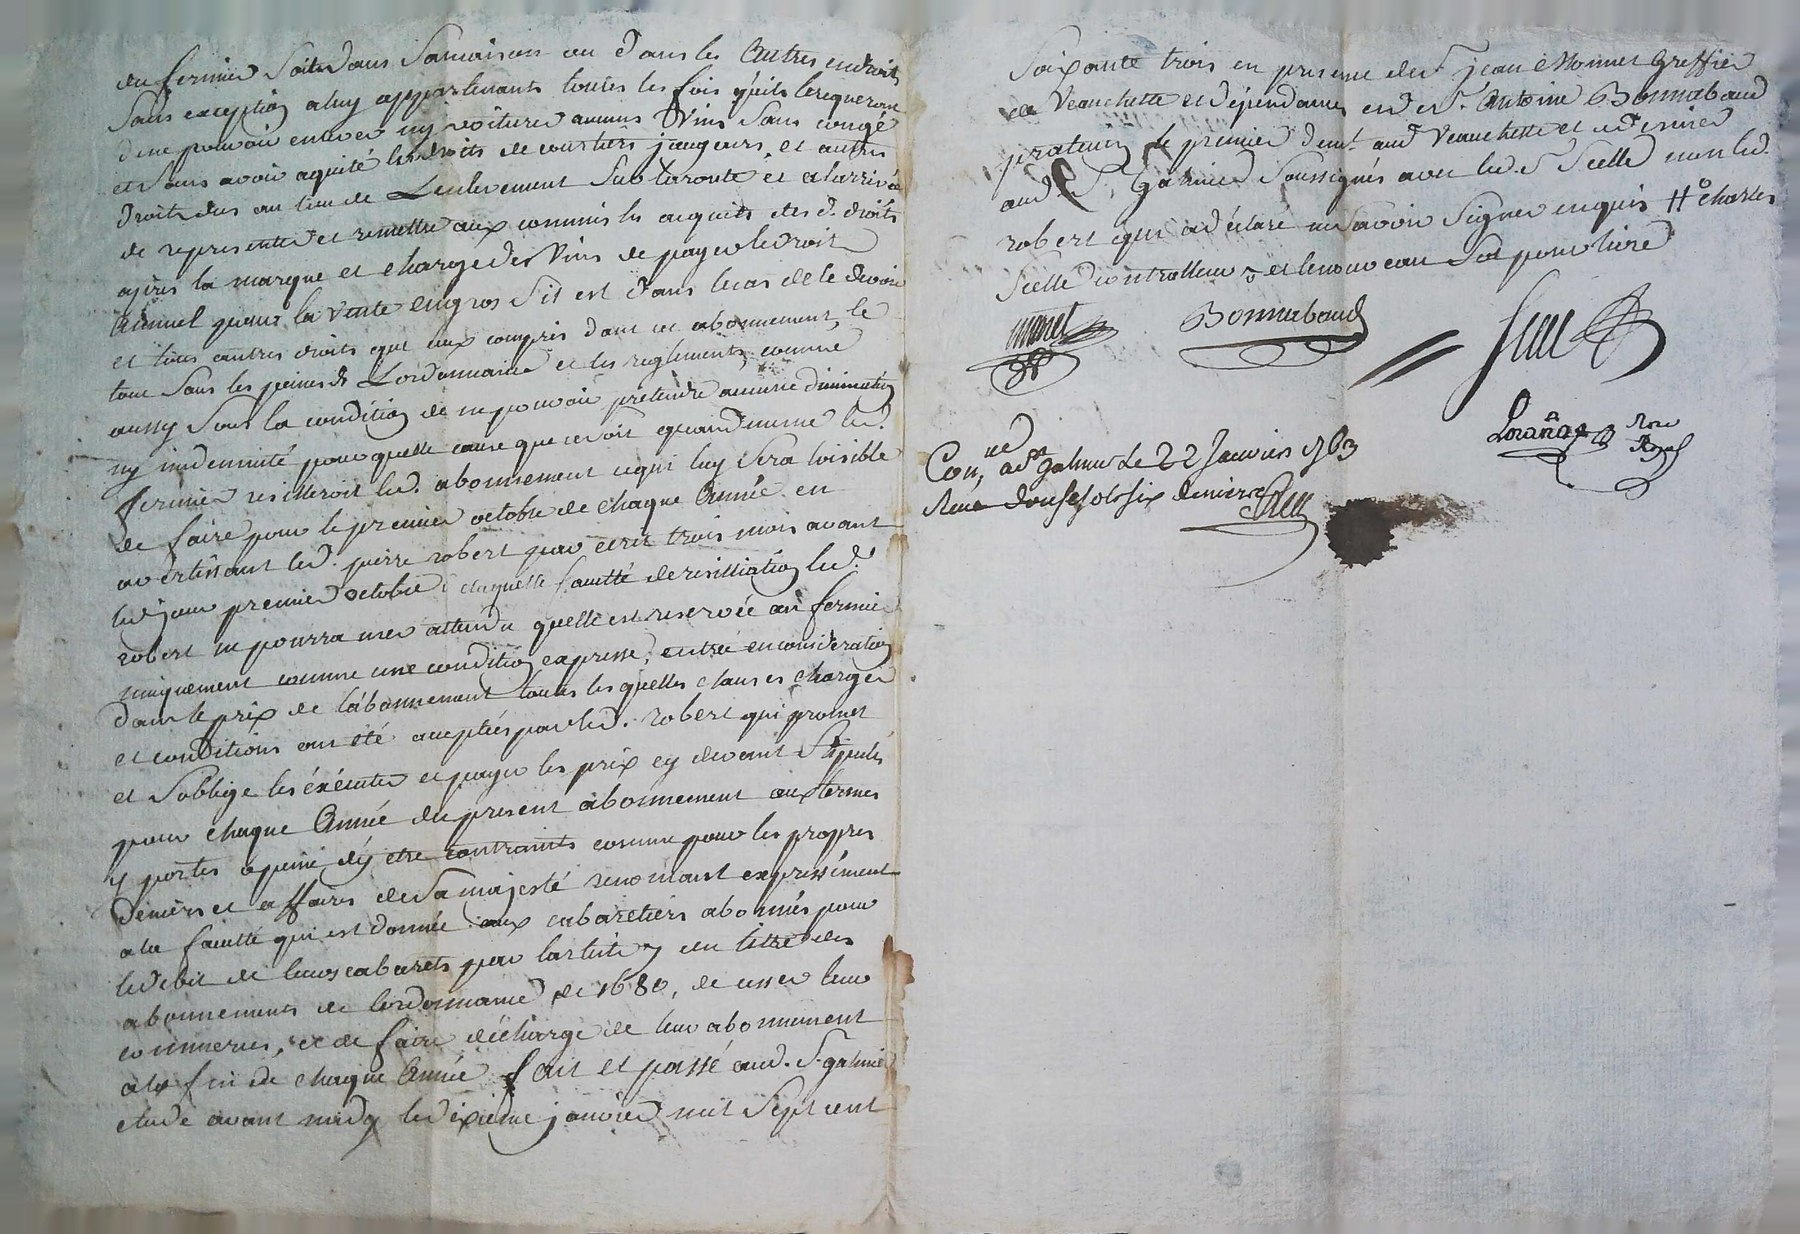 du fermier soit dans sa maison ou dans les autres endroits
sans exception a luy appartenants toutes les fois qu'ils le requeront
de ne pouvoir enlever ny voiturer aucuns vins sans congé
et sans avoir aquité les droits de courtiers jaugeurs et autres
droits dus au lieu de l'enlevement sur la route et a l'arrivée
de representer et remettre aux commis les acquits desd. droits
après la marque et charge des vins de payer le droit
annuel pour la vente en gros s'il est dans le cas de le devoir
et tous autres droits que ceux compris dans cet abonnement, le
tout sous les peines de Lordonnance et les reglements, comme
aussy sous la condition de ne pouvoir pretendre aucune diminution
ny indemnité pour quelle cause que ce soit quand meme led.
fermier resilieroit led. abonnement ce qui luy sera loisible
de faire pour le premier octobre de chaque année en
avertissant led. pierre robert par ecrit trois mois avant
led. jour premier octobre de laquelle faculté de resiliation led.
robert ne pourra user attendu quelle est reservée au fermier
uniquement comme une condition expresse, entrée en consideration
dans le prix de l'abonnement toutes lesquelles clauses charges
et conditions ont été acceptées par led. robert qui promet
et s'obblige les éxécuter et payer les prix cy devant stipulés
pour chaque année du present abonnement aux termes
y portés a peine d'y etre contraints comme pour les propres
deniers et affaires de sa majesté renonçant expressément
a la faculté qui est donnée aux cabaretiers abonnés pour
le debit de leurs cabarets par l'article 7 du titre des
abonnements de lordonnance de 1680, de cesser leur
commerce, et de faire décharge de leur abonnement
a la fin de chaque année fait et passé aud. St galmier
etude avant midy le dixieme janvier mil sept cent
soixante trois en presence de sr. jean Monnet Greffier
de Veauchette et dépendances et de sr. antoine Bonnabaud
praticien le premier demt. aud Veauchette et le dernier
aud St. Galmier soussignés avec led. sr Scelle non led.
robert qui a déclaré ne savoir signer enquis Ho. charles
Scelle controlleur et le nouveau sol pour livre
monnet
Bonnabaud
Conlé a St galmier le 22 Janvier 1763
Reçu douse sols six deniers
Nore
Royal